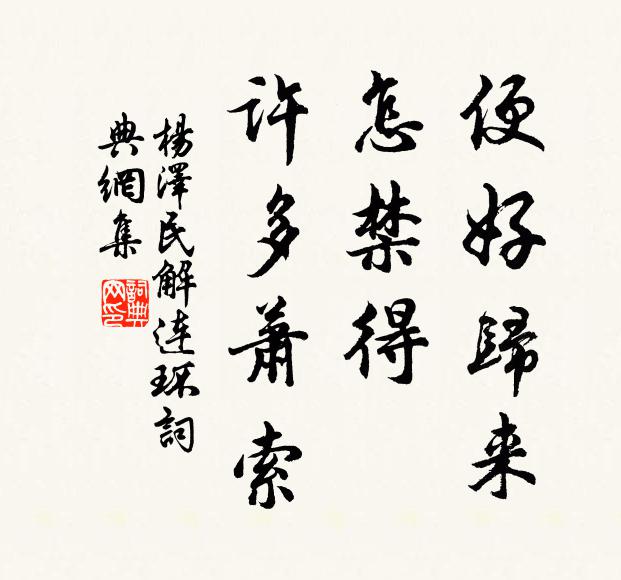 便好歸来
怎禁得
許多蕭索
楊澤民解連环詞
典網集
詞典网印